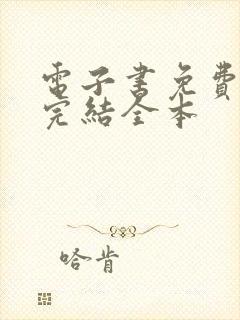 電子書免費
完結全本
哈肯